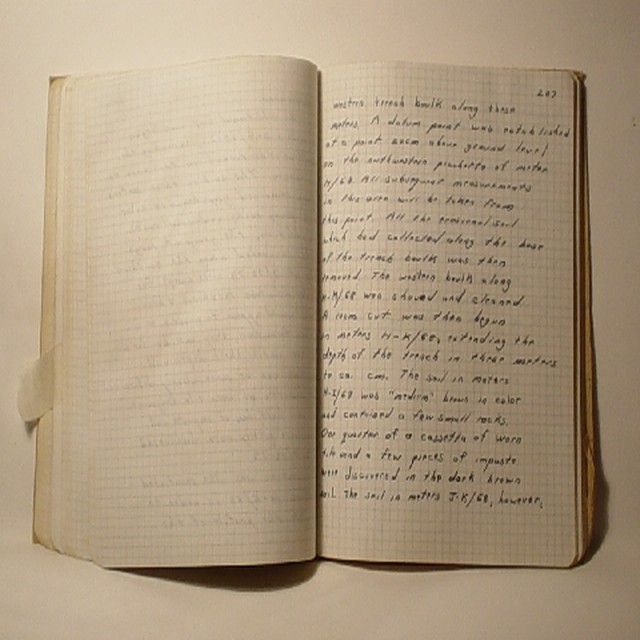 207
western trench baulk along these
meters. A datum point was established
at a point 20cm above ground level
on the northwestern picchetto of meter
H/68. All subsequent measurements
in this area will be taken from
this point. All the erosional soil
which had collected along the base
of the trench baulks was then
removed. The western baulk along
H-K/68 was shaved and cleaned.
A 10cm cut was then begun
in meters H-K/68, extending the
depth of the trench in these meters
to ca. cm. The soil in meters
H-I/68 was "medium" brown in color
and contained a few small rocks.
One quarter of a cassetta of worn
tile and a few pieces of impasto
were discovered in the dark brown
soil. The soil in meters J-K/68, however,